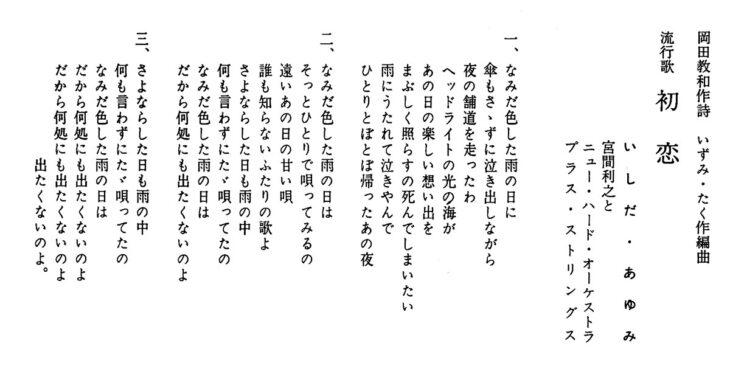 岡田教和作詩　いずみ・たく作編曲
流行歌　初恋
いしだ・あゆみ
宮間利之と
ニュー・ハード・オーケストラ
プラス・ストリングス
一、なみだ色した雨の日に
傘もさゝずに泣き出しながら
夜の舗道を走ったわ
ヘッドライトの光の海が
あの日の楽しい想い出を
まぶしく照らすの死んでしまいたい
雨にうたれて泣きやんで
ひとりとぼとぼ帰ったあの夜
二、なみだ色した雨の日は
そっとひとりで唄ってみるの
遠いあの日の甘い唄
誰も知らないふたりの歌よ
さよならした日も雨の中
何も言わずにたゞ唄ってたの
なみだ色した雨の日は
だから何処にも出たくないのよ
三、さよならした日も雨の中
何も言わずにたゞ唄ってたの
なみだ色した雨の日は
だから何処にも出たくないのよ
だから何処にも出たくないのよ
出たくないのよ。